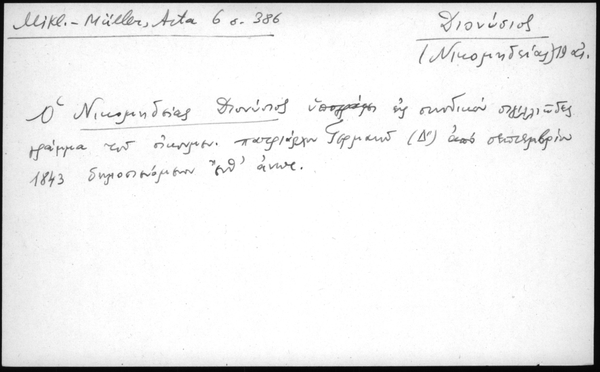 Mikl.-Müller, Acta 6 σ. 386
Διονύσιος
(Νικομηδείας) 19 αἰ.
Ὁ Νικομηδείας Διονύσιος ὑπογράφει εἰς συνοδικὸν σιγιλλιῶδες
γράμμα τοῦ οἰκουμεν. πατριάρχου Γερμανοῦ (Δ') ἀπὸ σεπτεμβρίου
1843 δημοσιευόμενον ἔνθ' ἀνωτ.